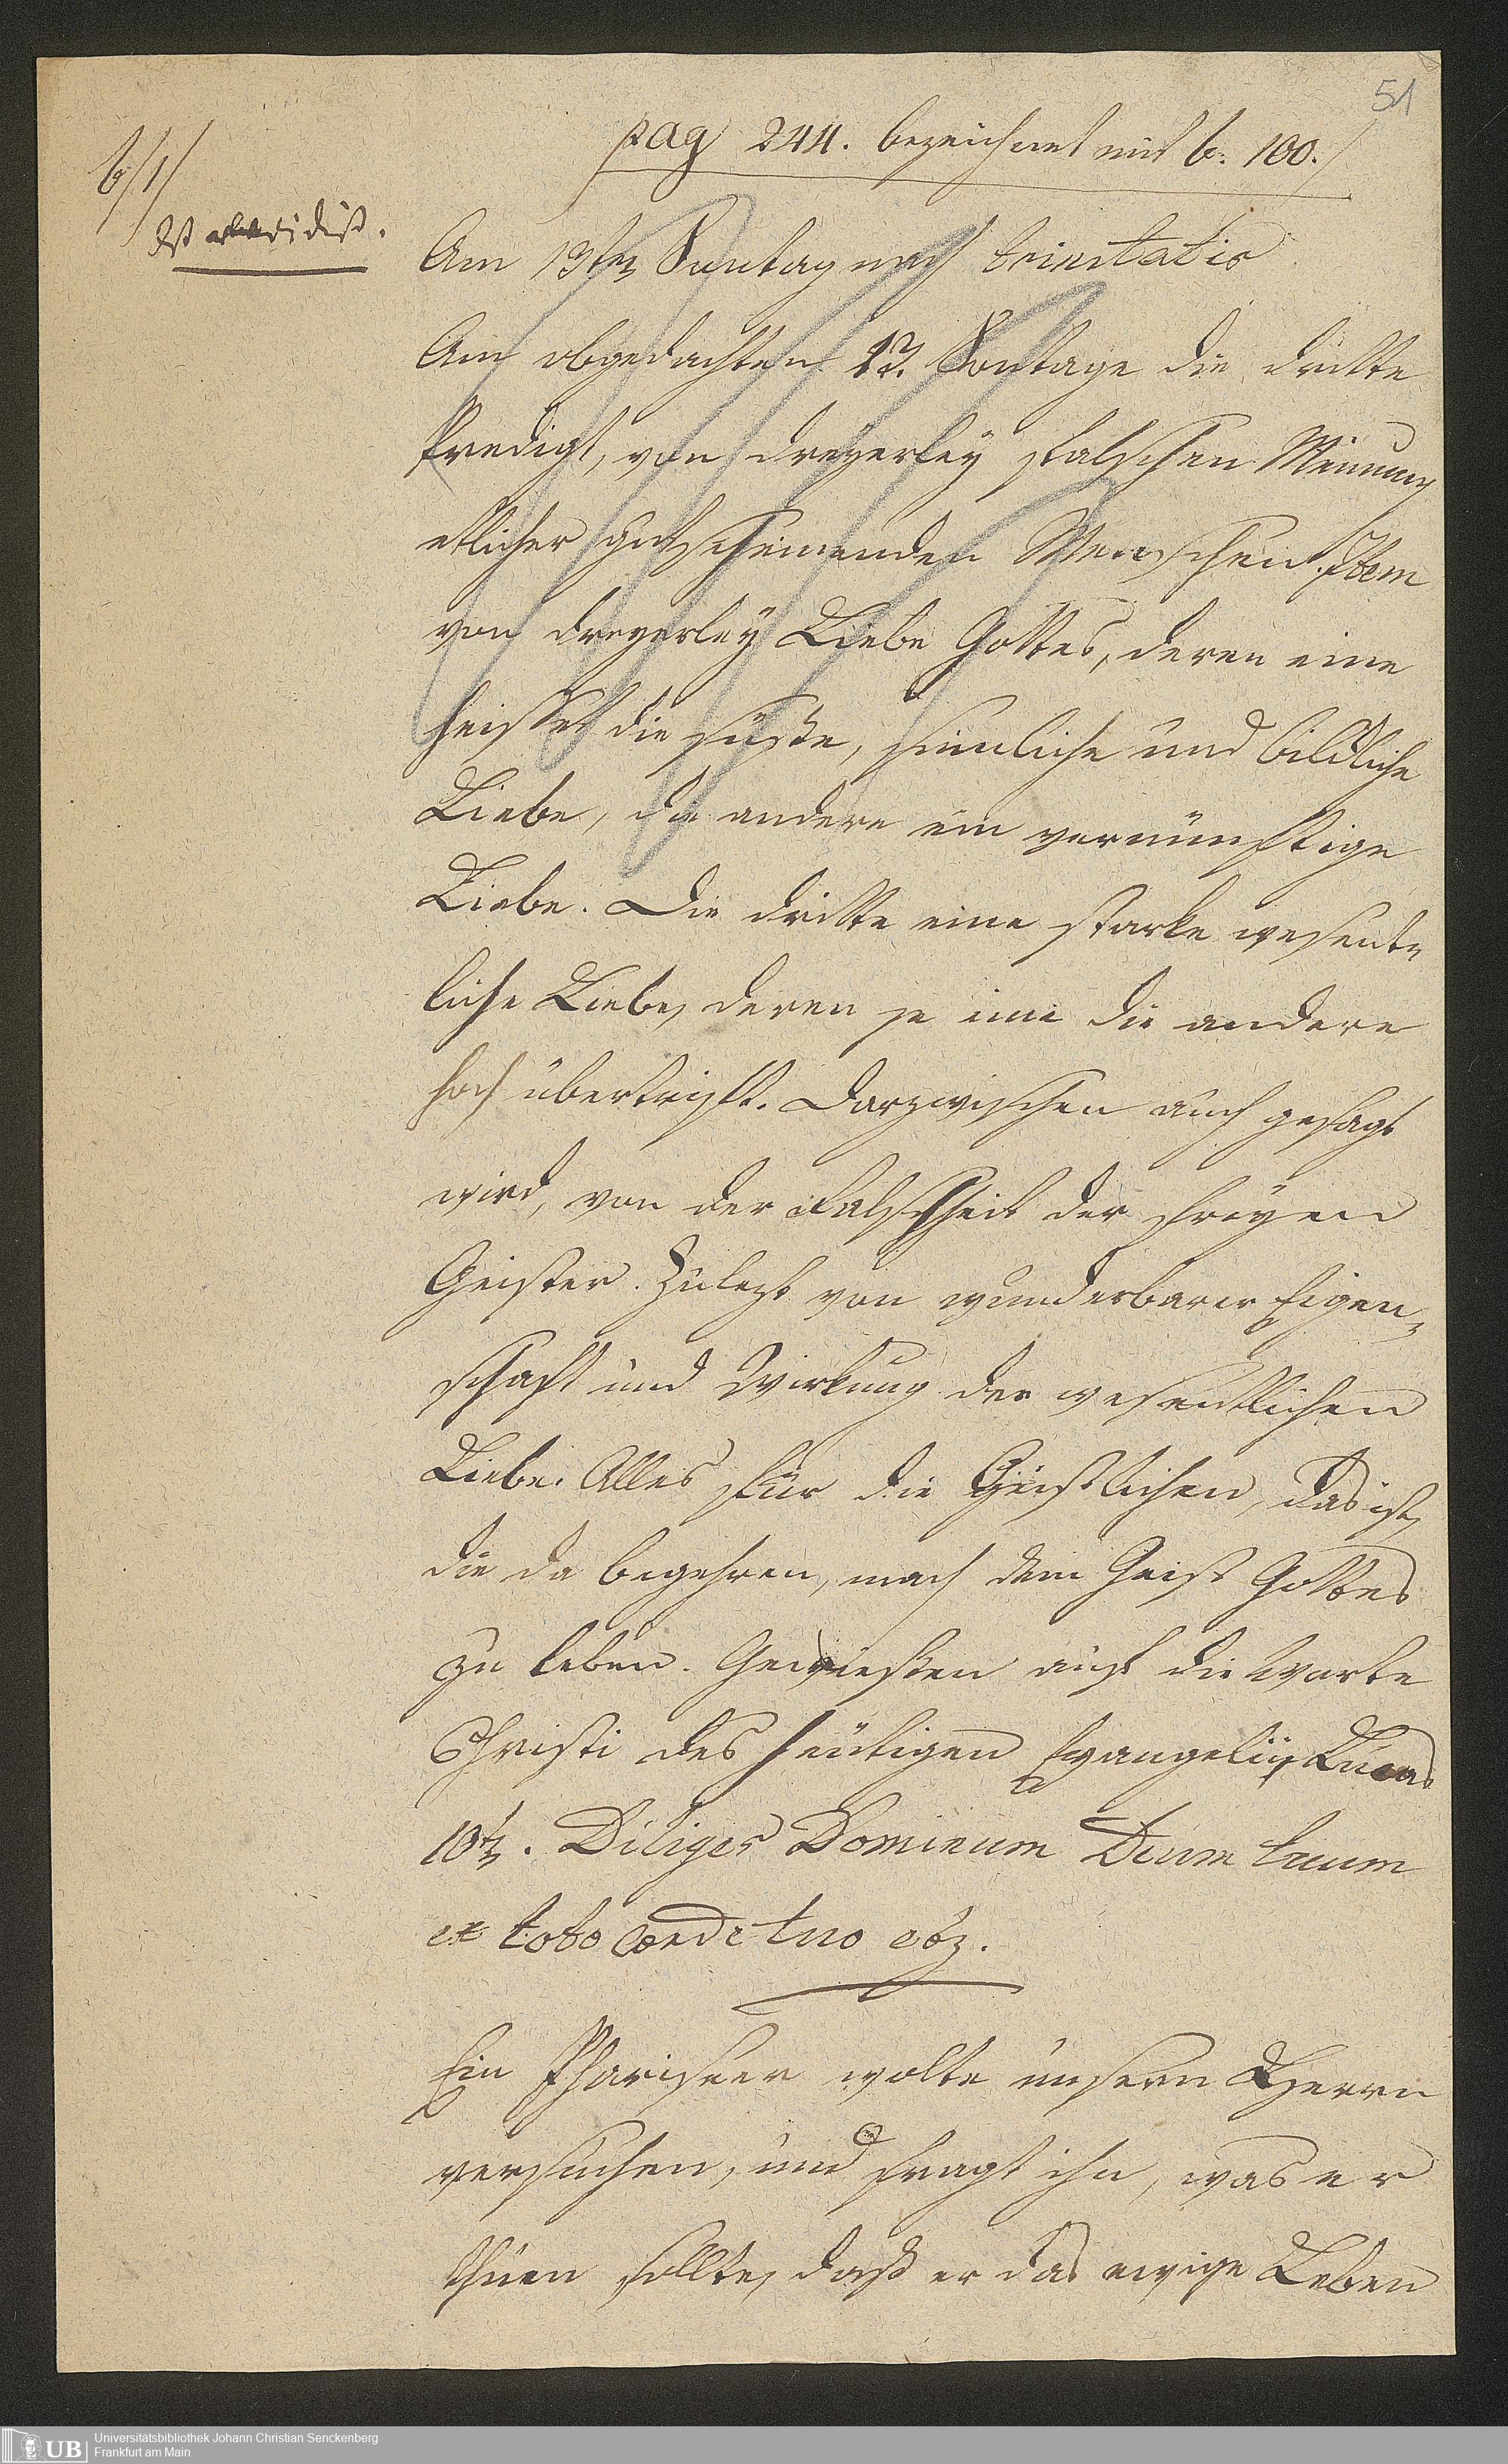 51
pag 244. bezeichnet mit b. 100.
b/1/
Ist
Am 13ten Suntag nach trinitatis
Am obgedachten 12. Sontage die dritte
Predigt, von dreyerley falschen Meinung
etlicher gutscheinenden Menschen. Item
von dreyerley Liebe Gottes, deren eine
heisset die süße, sinnliche und bildliche
Liebe, die andere ein vernünftige
Liebe. Die dritte eine starke wesent-
liche Liebe, deren je eine die andere
hoch übertrifft. Darzwischen auch gesagt
wird, von der Falschheit der freyen
Geister. Zulezt von wunderbarer Eigen-
schaft und Wirkung der wesentlichen
Liebe. Alles für die Geistlichen, das ist,
die da begehren, nach dem Geist Gottes
zu leben. Gewießen auf die Worte
Christi des heutigen Evangelii, Lucas
10t. Diliges Dominum Deum tuum
ex toto corde tuo etz.
Ein Phariseer wolte unsern Herrn
versuchen, und fragt ihn, was er
thuen sollte, daß er das ewige Leben
UB Universitätsbibliothek Johann Christian Senckenberg
Frankfurt am Main